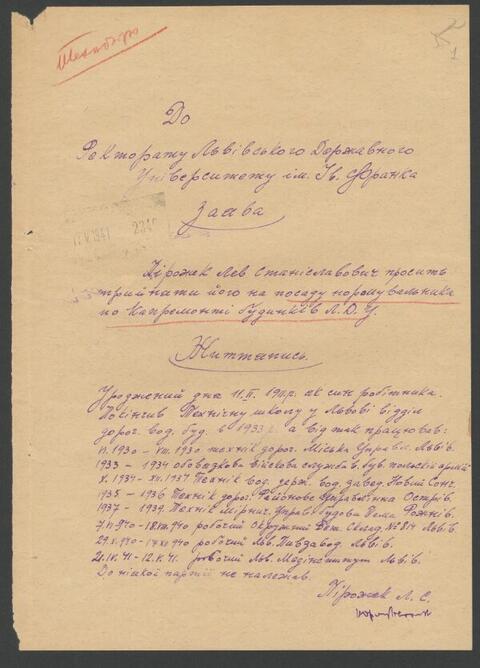 До
Ректорату Львівського Державного
Університету ім. Ів. Франка
Заява
V 1941
Пірожек Лев Станіславович просить
прийняти його на посаду нормувальника
по Капремонті будинків Л.Д.У.
Життєпись.
Уроджений дня 11.II. як син робітника.
Покінчив Технічну школу у Львові відділ
дорог. вод. буд. в 1933 р. а відтак працював:
1930 - VIII. 1930 технік дорог. Міська Управл. Львів.
1933 - 1934 обовязкова військова служба в був. польській армії
X. 1934 - XII. 1937 Технік вод. держ. вод. завед. Новий Сонч.
1935 - 1936 Технік дорог. Районове Управління Острів.
1937 - 1939. Технік Мірнич. Управ. будова
7.VI.940 - 18.VIII.940 робочий Окружний Вет. Склад № 814 Львів.
29.X.940 - робочий Льв. Пивзавод. Львів.
21.IV.41 - 12.V.41. робочий Льв. Медінститут Львів.
До ніякої партії не належав.
Пірожек Л. С.